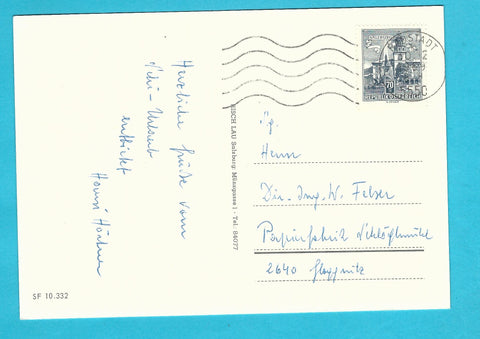 Herzliche Grüße vom
Schi-Urlaub
entbietet
SF 10.332
RISCH LAU Salzburg Münzgasse 1 - Tel. 84077
STADT
5550
70
REPUBLIK ÖSTERREICH
Herrn
Dir. Ing. W. Felser
Papierfabrik Schlöglmühl
2640 Gloggnitz